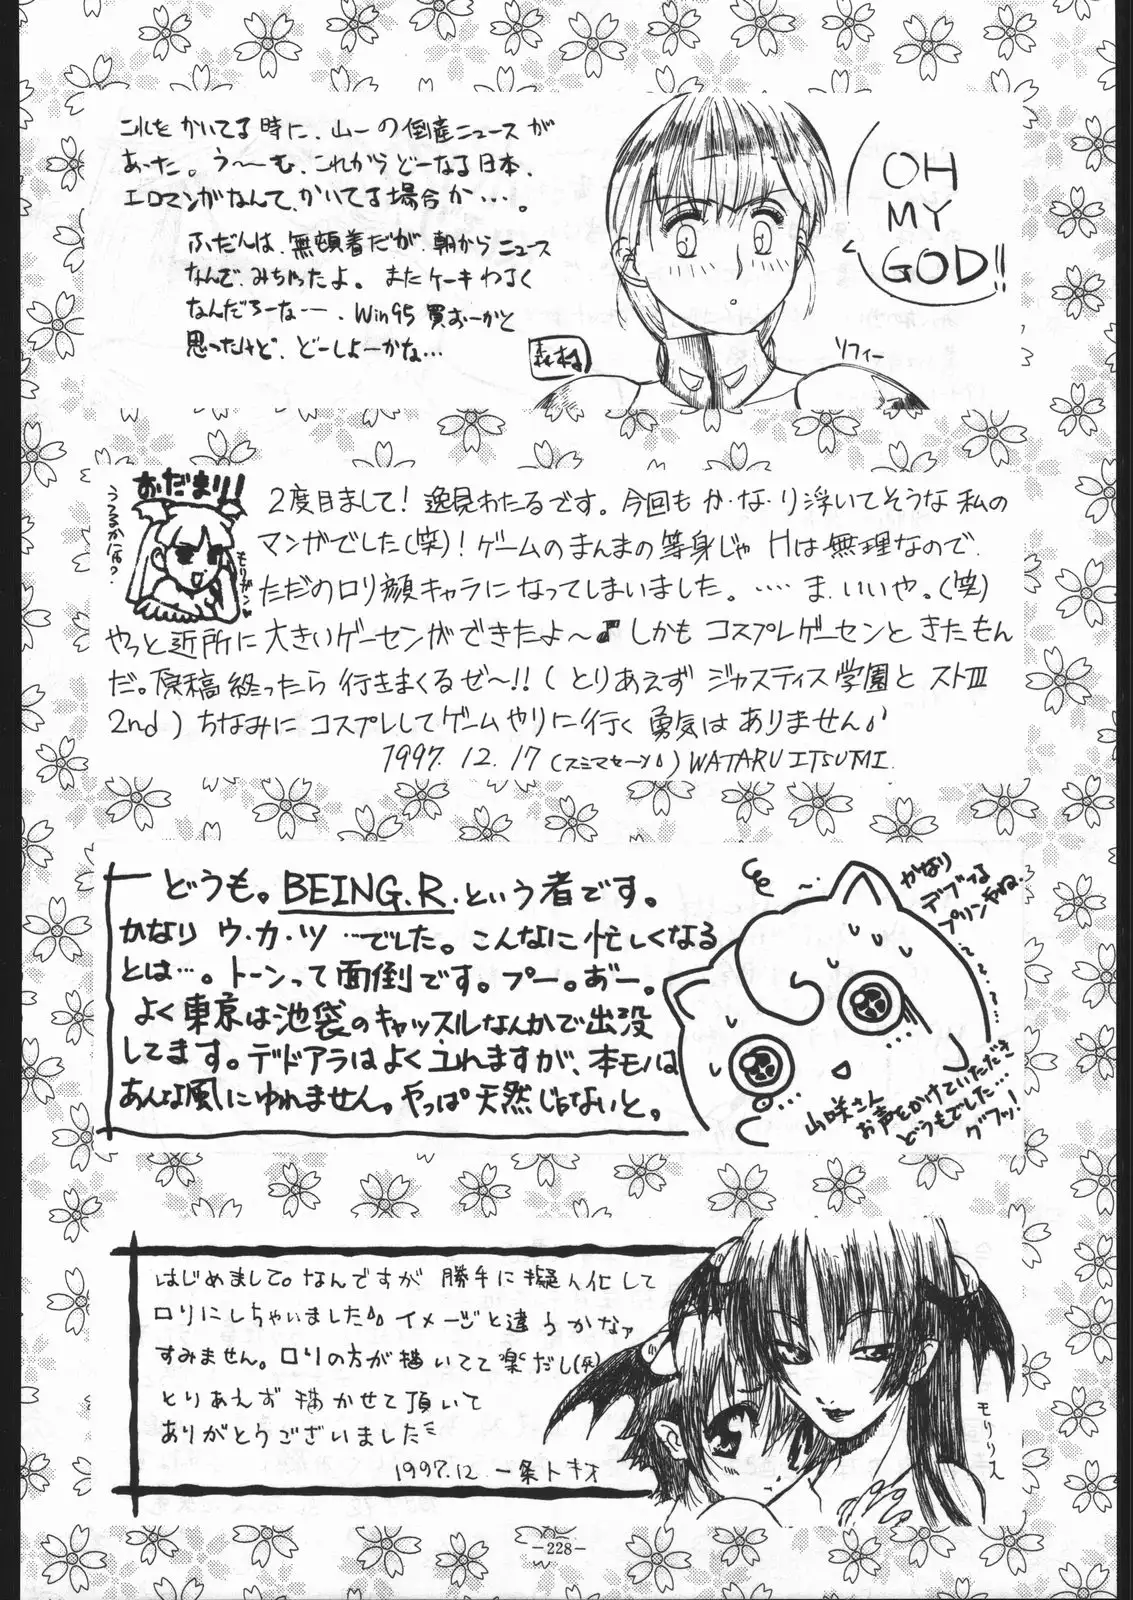 これをかいてる時に、山一の倒産ニュースが
あった。う〜む、これからどーなる日本、
エロマンガなんて、かいてる場合か…。
ふだんは、無頓着だが、朝からニュース
なんて、みちゃったよ。またケーキわるく
なんだろーなー、Win95買おーかと
思ったけど、どーしよーかな…
森村
OH
MY
GOD!!
ソフィー
おだまり!
うるるかに何?
モリガン
2度目まして!逸見わたるです。今回もか・な・り浮いてそうな私の
マンガでした(笑)!ゲームのまんまの等身じゃHは無理なので、
ただのロリ顔キャラになってしまいました。……ま、いいや。(笑)
やっと近所に大きいゲーセンができたよ〜♪しかもコスプレゲーセンときたもん
だ。原稿終ったら行きまくるぜ〜!!(とりあえずジャスティス学園とストⅢ
2nd)ちなみにコスプレしてゲームやりに行く勇気はありません♪
1997.12.17(スミマセーン)WATARU ITSUMI.
どうも。BEING.R.という者です。
かなりウ・カ・ツ…でした。こんなに忙しくなる
とは…。トーンって面倒です。プー。あ゛ー。
よく東京は池袋のキャッスルなんかで出没
してます。デドアラはよくユれますが、本モノは
あんな風にゆれません。やっぱ天然じゃないと。
かなり
デブってる
プリンだね.
山咲さん
お声をかけていただき
どうもでした…
グフッ!
はじめまして。なんですが勝手に擬人化して
ロリにしちゃいました♪イメージと違うかなァ
すみません。ロリの方が描いてて楽だし(死)
とりあえず描かせて頂いて
ありがとうございました
1997.12 一条トキオ
モリリス
-228-